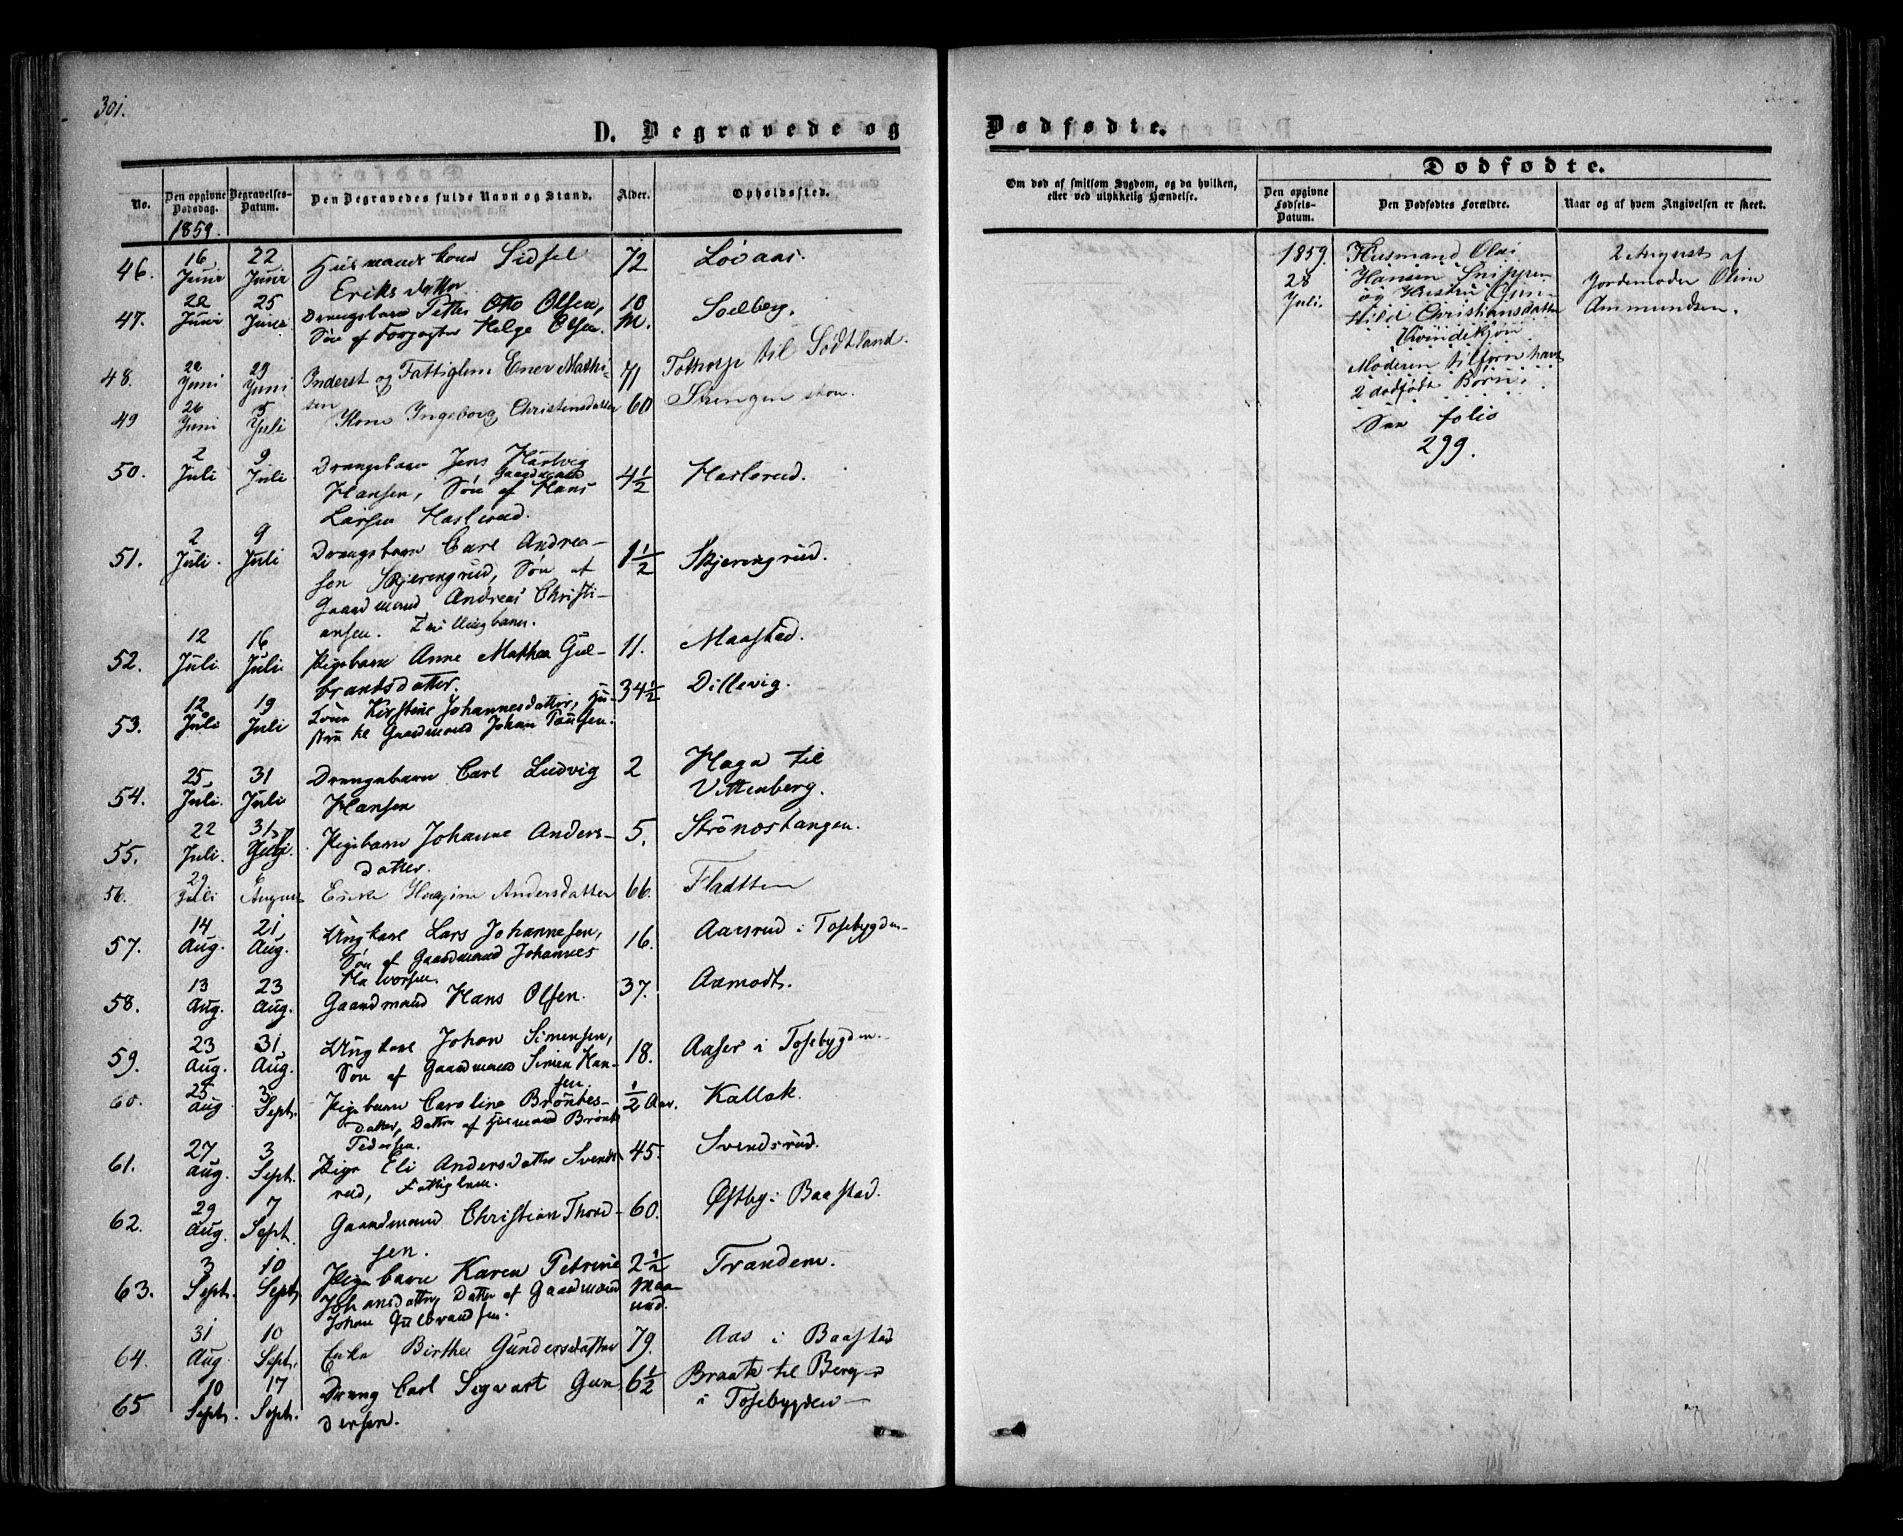 301.
D. Begravede og
Dødfødte.
No.
Den opgivne Dødsdag.
Begravelses-Datum.
Den Begravedes fulde Navn og Stand.
Alder.
Opholdssted.
1859.
46. 16 Juni 22 Juni Husmandskone Sidsel 72 Lövaas.
Eriksdatter
47. 22 Juni 25 Juni Drengebarn Petter Otto Olsen, 10 M. Solberg.
Søn af Forpagter Helge Olsen.
48. 22 Juni 29 Juni Inderst og Fattiglem Ener Mathi- 71 Tothorp til Södtland.
sen
49 26 Juni 5 Juli Kone Ingeborg Christensdatter 60
50. 2 Juli 9 Juli Drengebarn Jens Hartvig 4½ Haslerud.
Hansen, Søn af Gaardmand Hans
Larsen Haslerud.
51. 2 Juli. 9 Juli Drengebarn Carl Andrea- 1½ Skjerengrud.
sen Skjerengrud, Søn af
Gaardmand Andreas Christi-
ansen. Tvillingbarn.
52. 12 Juli 16 Juli Pigebarn Anne Mathea Gul- 11. Maastad.
brantsdatter.
53. 12 Juli 19 Juli Kone Kirstine Johannesdatter, Hu- 34½ Dillevig.
stru til Gaardmand Johan Paulsen.
54. 25 Juli. 31 Juli Drengebarn Carl Ludvig 2 Haga til
Hansen Vittenberg.
55. 22 Juli. 31 Juli. Pigebarn Johanne Anders- 5. Strönostangen.
datter.
56. 29 Juli 6 August Enke Andersdatter 66. Fladtten
57. 14 Aug. 21 Aug. Ungkarl Lars Johannesen, 16. Aarsrud i Tosebygden
Søn af Gaardmand Johannes
Halvorsen
58. 13 Aug. 23 Aug. Gaardmand Hans Olsen. 37. Aamodt.
59. 23 Aug. 31 Aug. Ungkarl Johan Simensen, 18. Aaser i Tosebygden
Søn af Gaardmand Simen Han-
sen.
60. 25 Aug 3 Sept. Pigebarn Caroline Bröntes- ½ Aar. Kallak.
datter, Datter af Husmand Brönte
Pedersen.
61. 27 Aug. 3 Sept. Pige Eli Andersdatter Svends- 45. Svendsrud.
rud, Fattiglem.
62. 29 Aug. 7 Sept. Gaardmand Christian Thord- 60. Østby i Baastad.
sen.
63. 3 Sept. 10 Sept. Pigebarn Karen Petrine 2½ Maa- Trandem.
Johansdatter, Datter af Gaardmand neder.
Johan Gulbrandsen.
64. 31 Aug. 10 Sept. Enke Birthe Gundersdatter 79. Aas i Baastad
65 10 Sept. 17 Sept. Dreng Carl Sigvart Gun- 6½ Braate til Berg
dersen. i Tosebygden
Om død af smitsom Sygdom, og da hvilken,
eller ved ulykkelig Hændelse.
Dødfødte.
Den opgivne Fødsels-Datum.
Den Dødfødtes Forældre.
Naar og af hvem Angivelsen er skeet.
1859. Husmand Olai 2 August af
28 Juli. Hansen Snippen Jordemoder Oline
og Hustru Gun- Ammundsen.
hild Christiansdatter
Qvindekjön
Moderen tilforn havt
2 dødfødte Börn.
See folio
299.